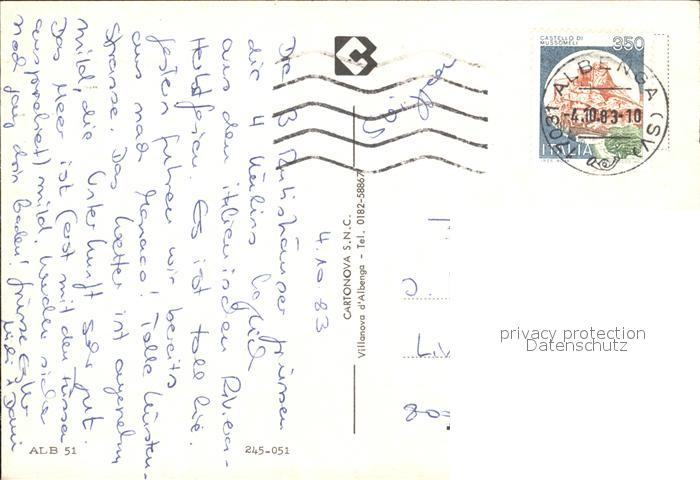 4.10.83
Die 3 grüssen
die 4 herzlich
aus den italienischen Riviera-
Herbstferien. Es ist toll hie.
gestern fuhren wir bereits
aus nach Monaco! Tolle Küsten-
Strasse. Das Wetter ist angenehm
mild, die Unterkunft sehr gut.
Das Meer ist (erst mit den Füssen
ausprobiert) mild. Werden sicher
noch ganz drin baden! Grüsse Euch
ALB 51
245-051
CARTONOVA S.N.C.
Villanova d'Albenga - Tel. 0182-58867
CASTELLO DI
MUSSOMELI
350
ITALIA
17031 ALBENGA (SV)
-4.10.83-10
privacy protection
Datenschutz